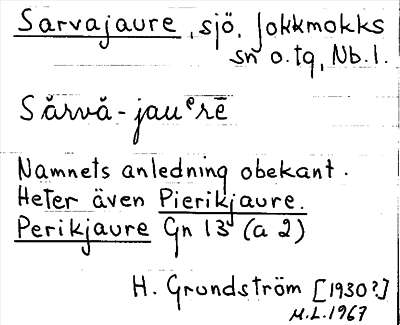 Sarvajaure, sjö. Jokkmokks
sn o. tg, Nb. l.
Sårvå-jauᵉrē
Namnets anledning obekant.
Heter även Pierikjaure.
Perikjaure Gn 13 (a 2)
H. Grundström [1930?]
M.L. 1967